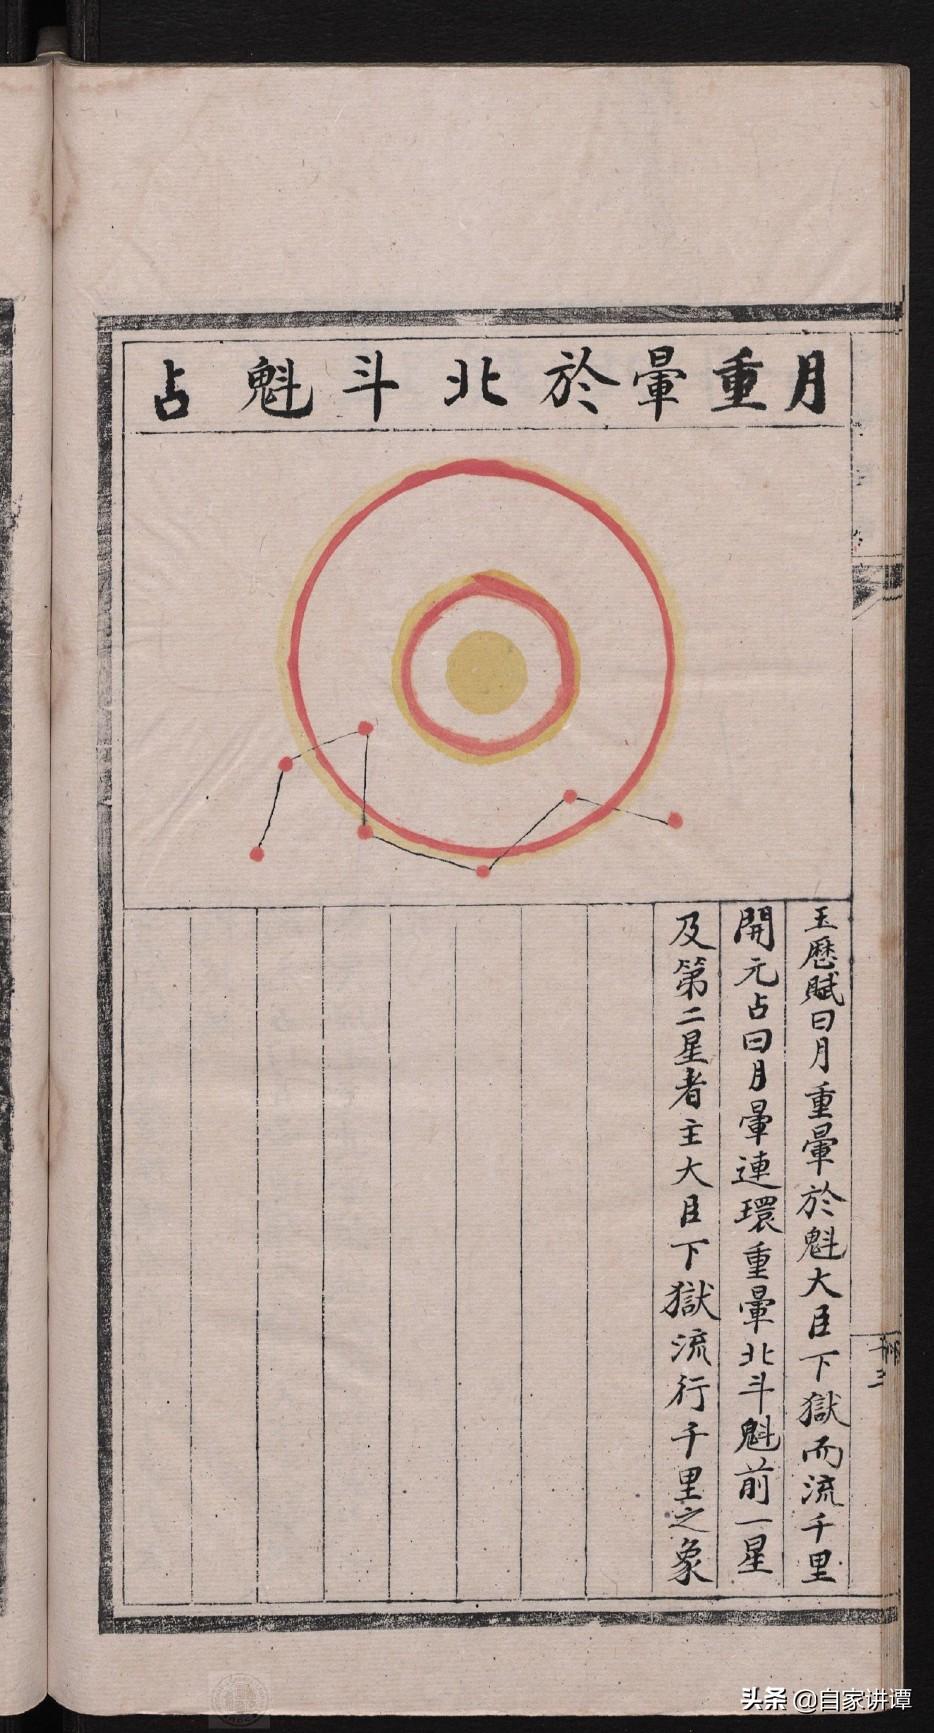 月重暈於北斗魁占
玉歷賦曰月重暈於魁大臣下獄而流千里
開元占曰月暈連環重暈北斗魁前一星
及第二星者主大臣下獄流行千里之象
头条 @自家讲谭